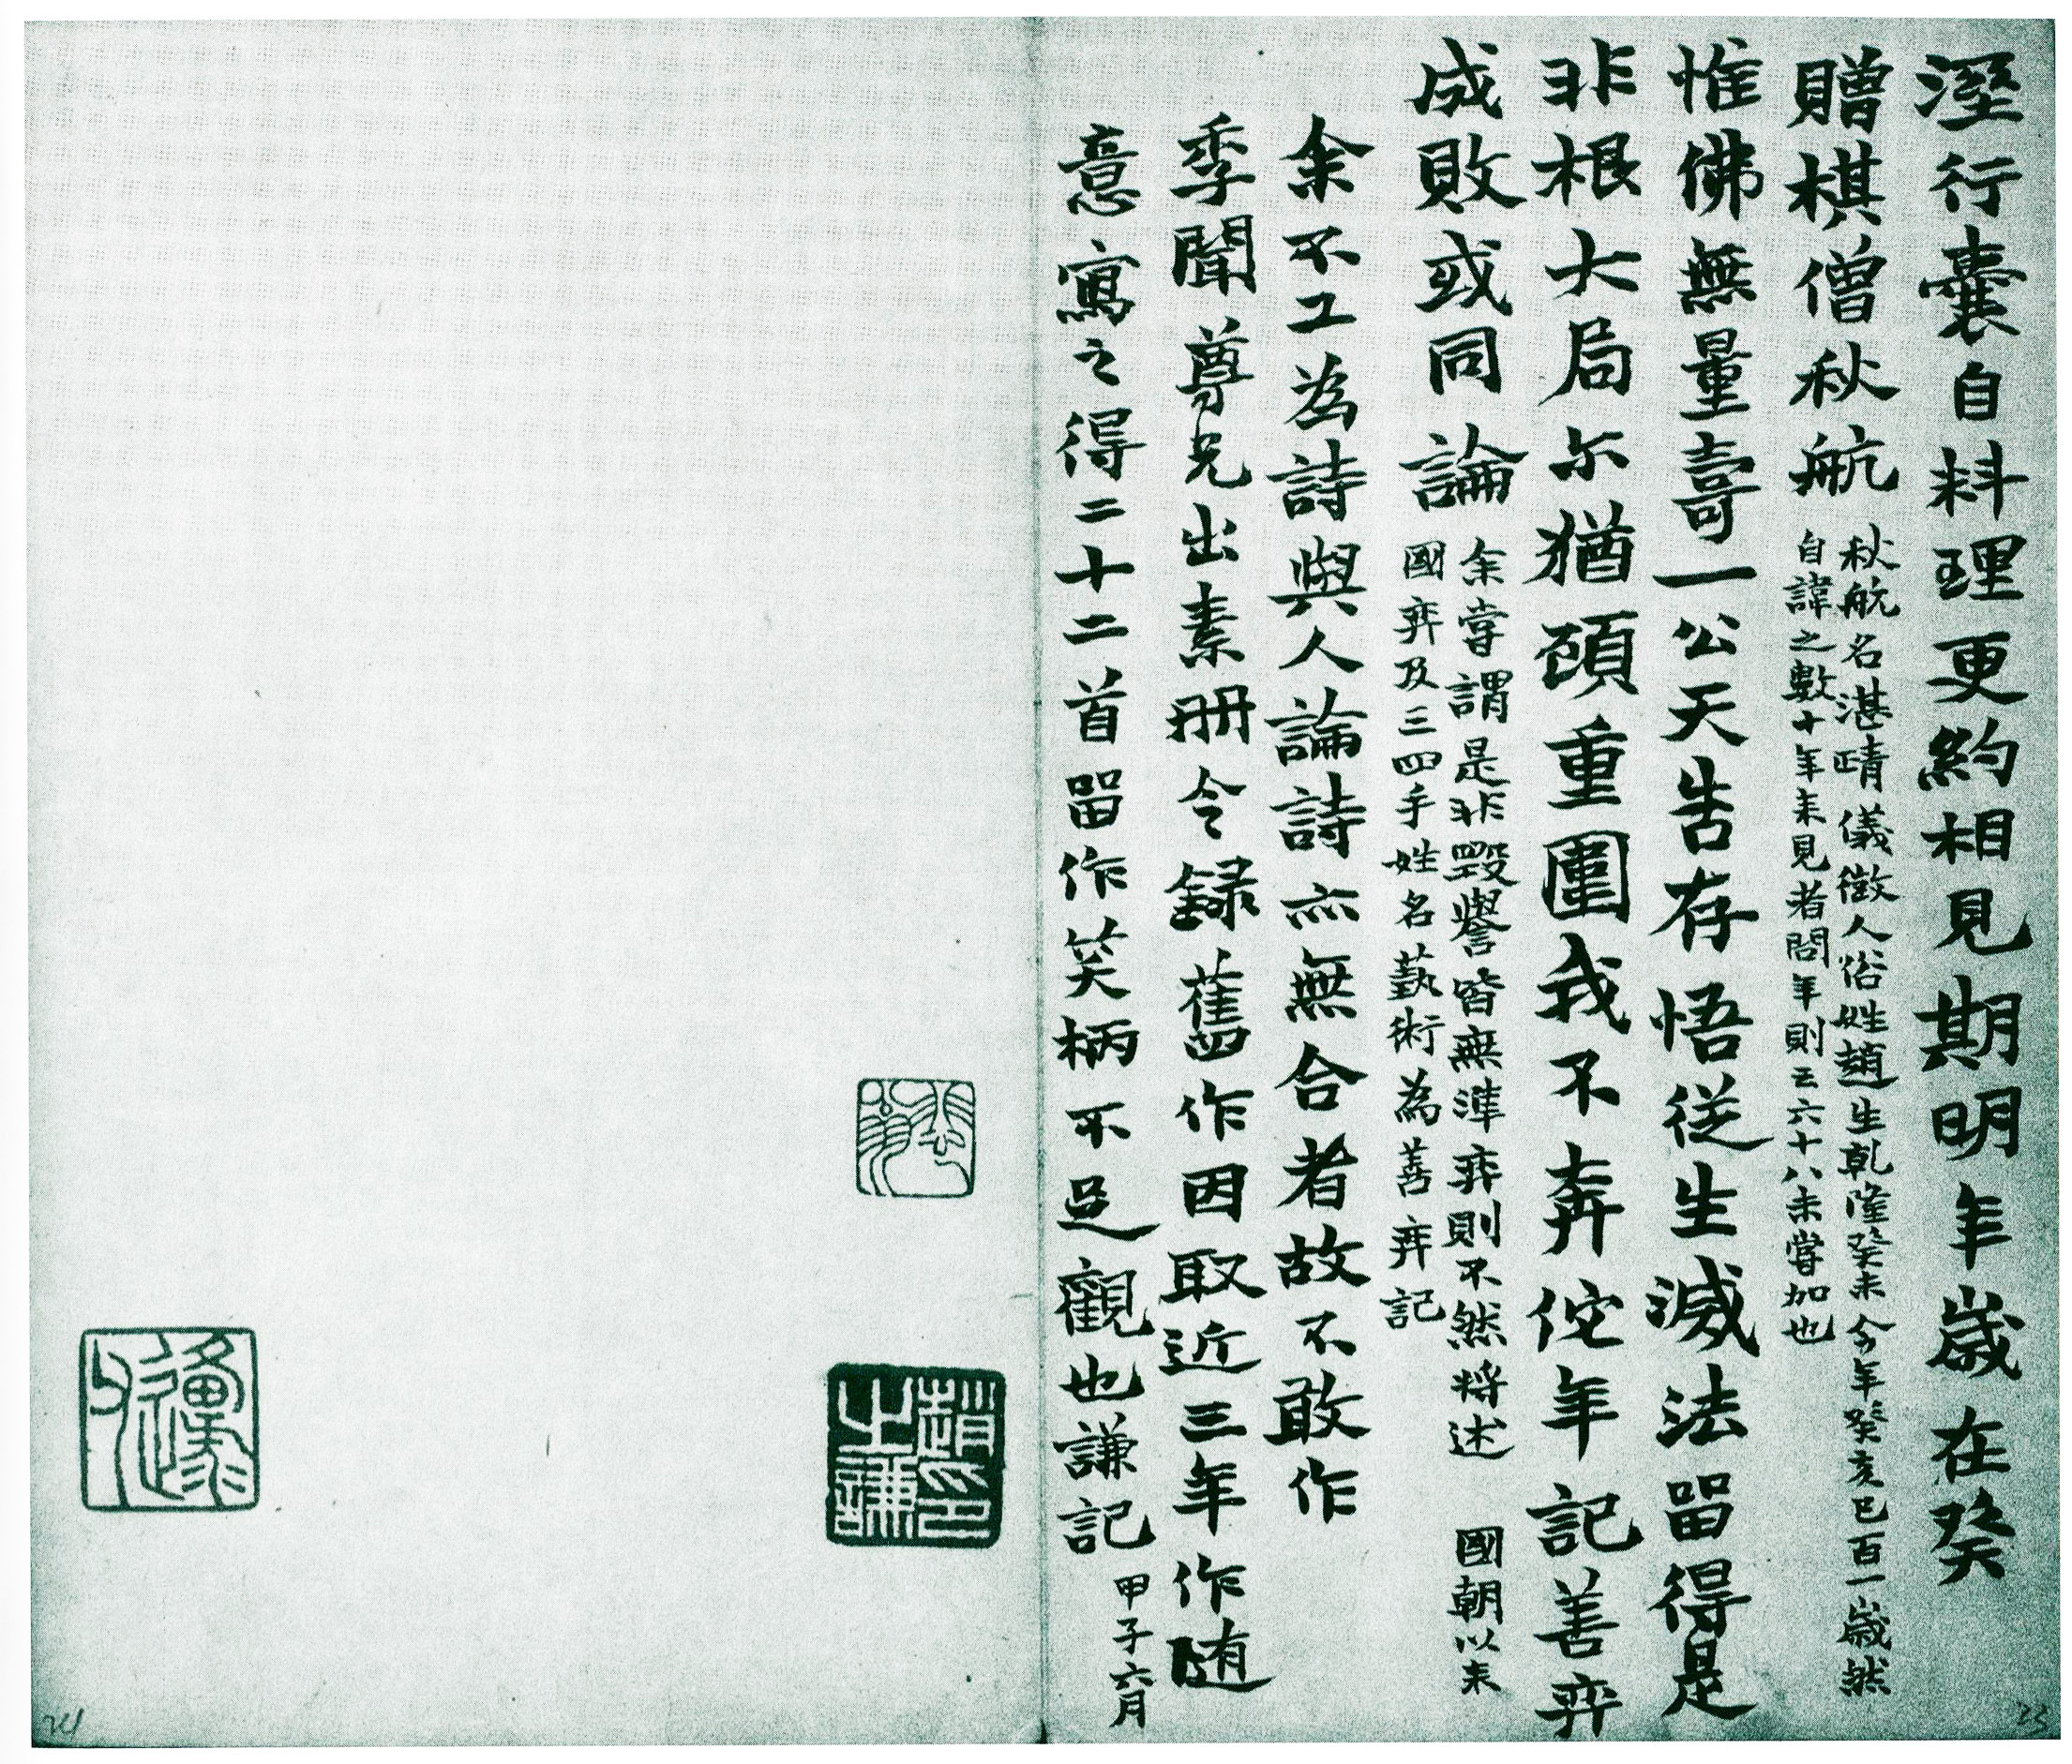 溼行囊自料理更約相見期明年歲在癸
贈棋僧秋航
秋航名湛晴儀徵人俗姓趙生乾隆癸未今年癸亥已百一歲然
自諱之數十年來見者問年則云六十八未嘗加也
惟佛無量壽一公天告存悟從生滅法留得是
非根大局尒猶頑重圍我不奔佗年記善弈
成敗或同論
余嘗謂是非毀譽皆無準弈則不然將述 國朝以來
國弈及三四手姓名藝術為善弈記
余不工為詩與人論詩亦無合者故不敢作
季聞尊兄出素冊令録舊作因取近三年作随
意寫之得二十二首留作笑柄不足觀也謙記 甲子六月
趙之謙印